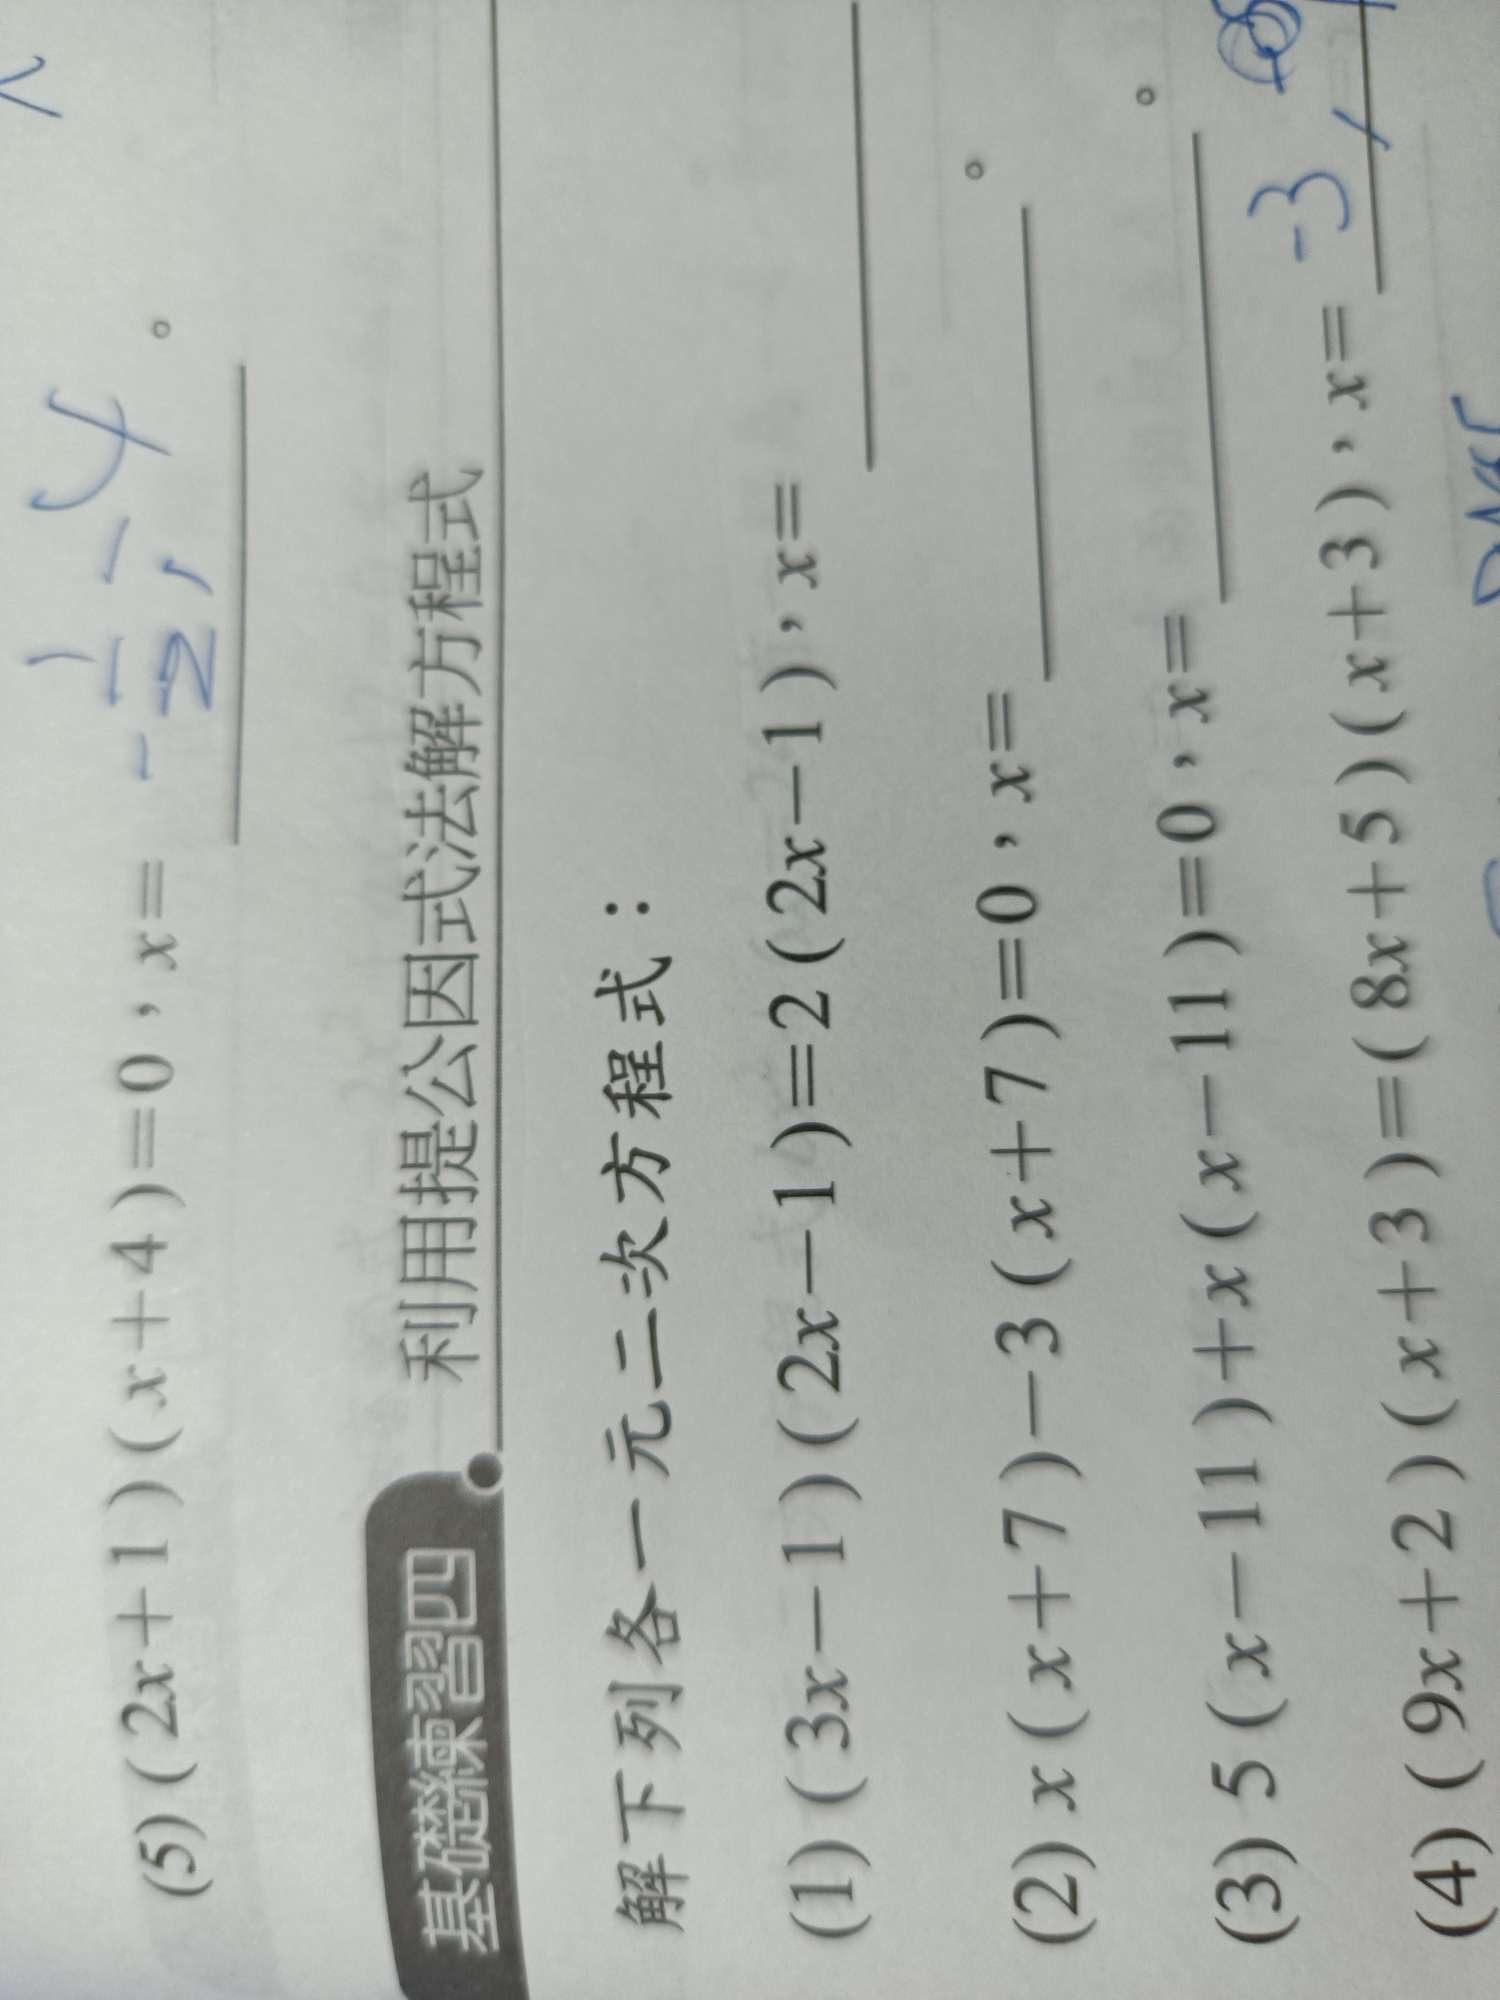 (5)(2x+1)(x+4)=0，x= -1/2, -4 。
基礎練習四 利用提公因式法解方程式
解下列各一元二次方程式：
(1)(3x-1)(2x-1)=2(2x-1)，x=
(2)x(x+7)-3(x+7)=0，x= 。
(3)5(x-11)+x(x-11)=0，x= 。
(4)(9x+2)(x+3)=(8x+5)(x+3)，x= -3,